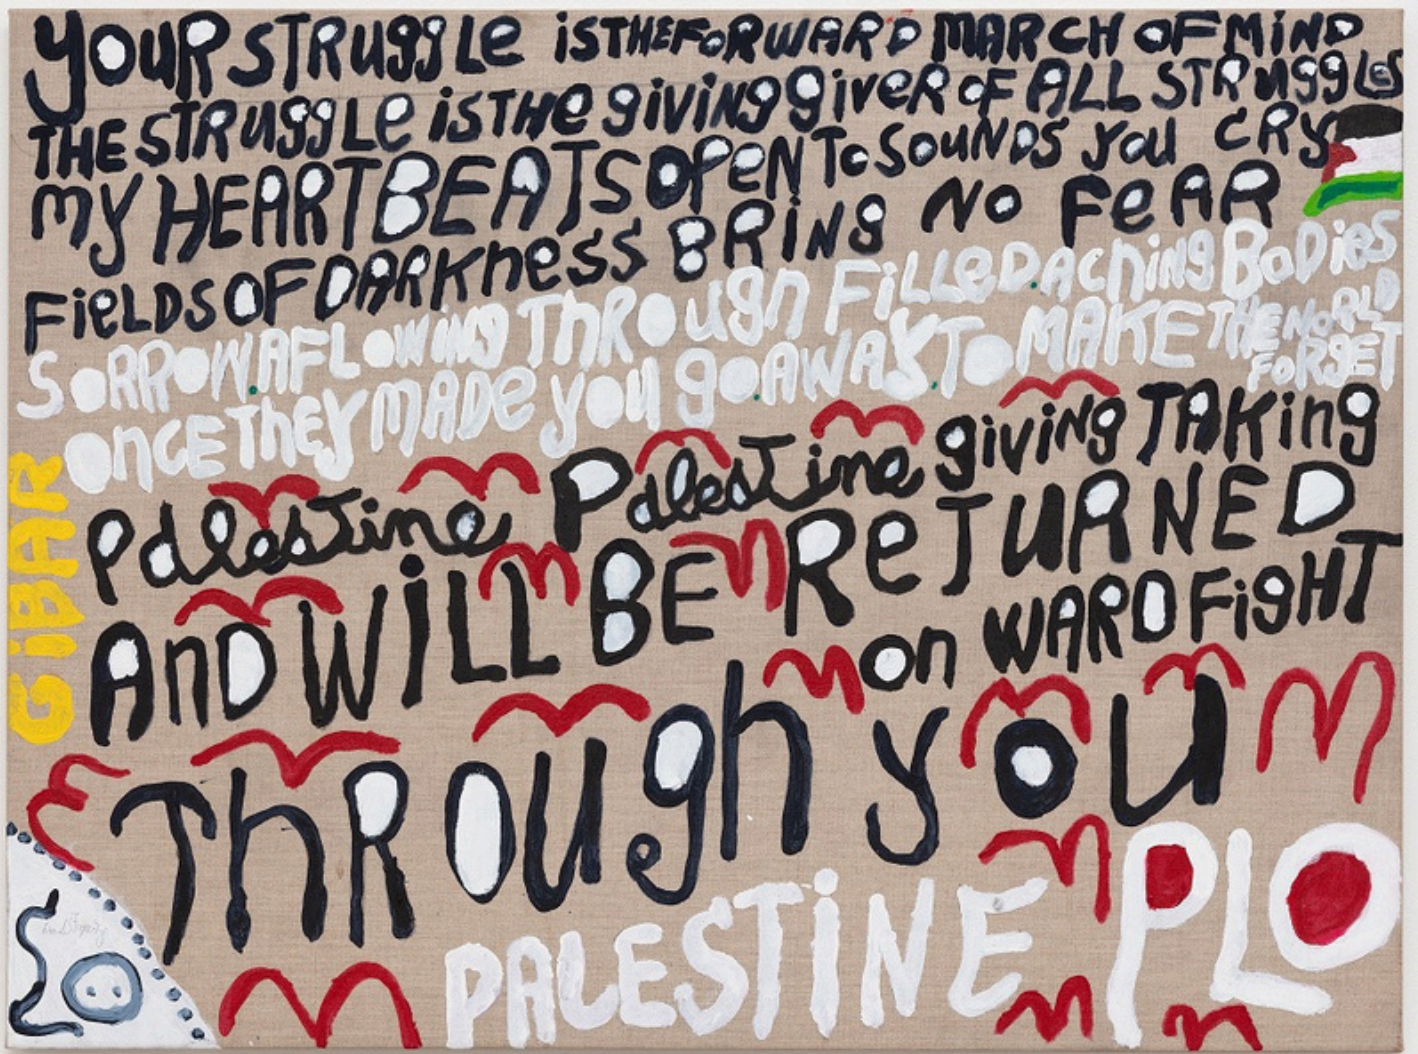 YOUR STRUggLe isTHeFoRWARD MARCH OF MiND
THE STRUggLe isTHe giViNg giveR OF ALL STRUggLes
MY HEARTBEATS OPeN To SOUNDS you CRY
FieLDS OF DARKness BRiNg No FeAR
SoRROW.AFLowing ThROugh FiLLeD.AChing BoDies
onceTheY MADe you go.AWAY.To MAKE THE WORLD FoRgET
PalesTine PalesTine giviNg TAKing
AnD WiLL BE ReTURNED
on WARD FigHT
ThROugh you
PALESTiNE PLO
GiBAR